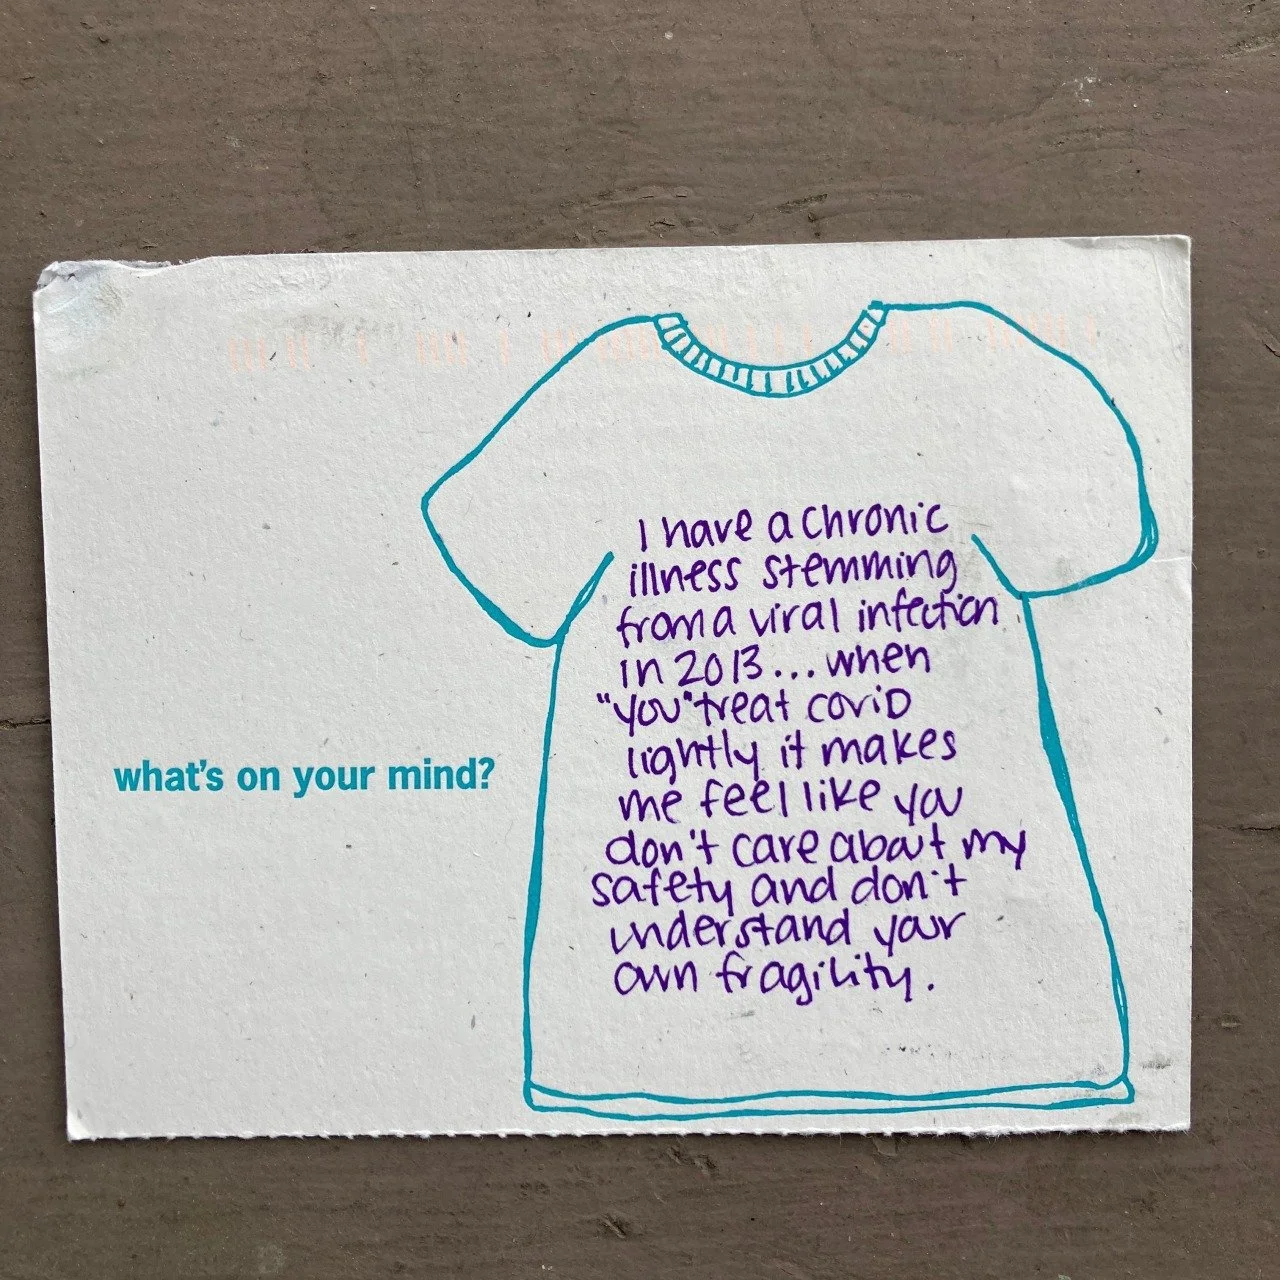 what's on your mind?
I have a chronic
illness stemming
from a viral infection
in 2013... when
"you" treat covid
lightly it makes
me feel like you
don't care about my
safety and don't
understand your
own fragility.